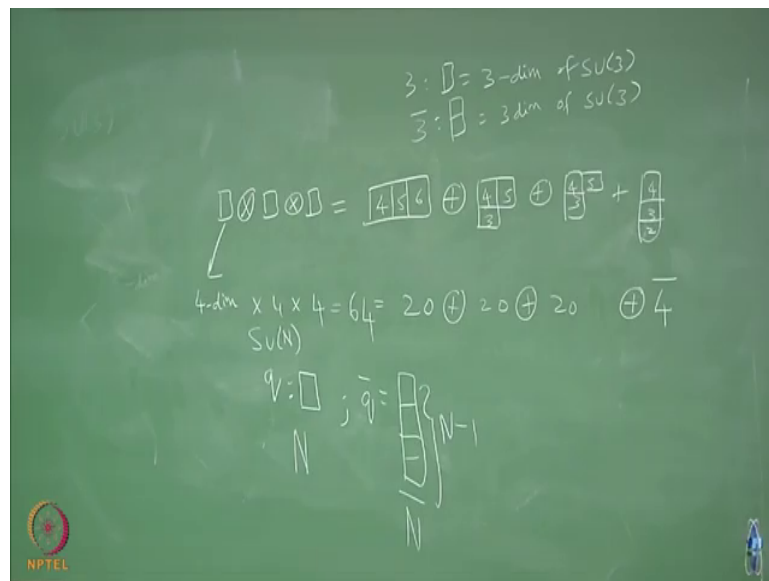 3 : □ = 3-dim of SU(3)
3̅ : 日 = 3 dim of SU(3)
□ ⊗ □ ⊗ □ = 4 5 6 ⊕ 4 5 3 ⊕ 4 5 3 + 4 3 2
4-dim × 4 × 4 = 64 = 20 ⊕ 20 ⊕ 20 ⊕ 4̅
SU(N)
q : □ ; q̅ = } N-1
N N̅
NPTEL